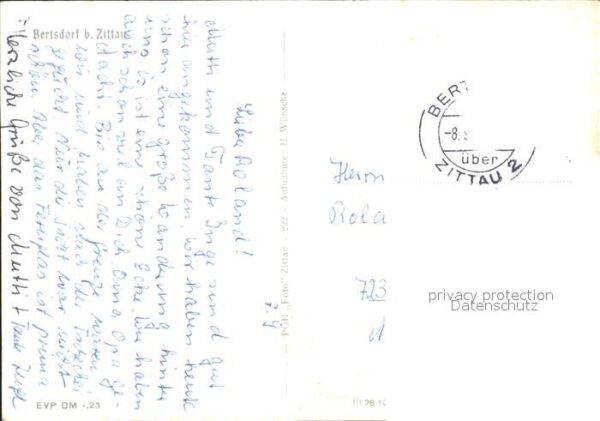 Bertsdorf b. Zittau
7.4
Lieber Roland!
Mutti und Tante Inge sind gut
hier angekommen. Wir haben heute
schon eine große Wanderung hinter
uns. Es ist eine schöne Ecke. Wir haben
auch schon viel an Dich Oma Opa ge-
dacht. Bis an der Grenze waren
wir und haben nach der Tschechei
geguckt. Nur die Sicht war nicht
schön. Aber das Fernglas ist prima
Herzliche Grüße von Mutti + Tante Inge
PGH „Foto“ Zittau - 222 - Aufnahme: H. Wünsche
EVP DM -.23
III 28 10
BERT
-8.
über
ZITTAU 2
Herrn
Rola
723
privacy protection
Datenschutz